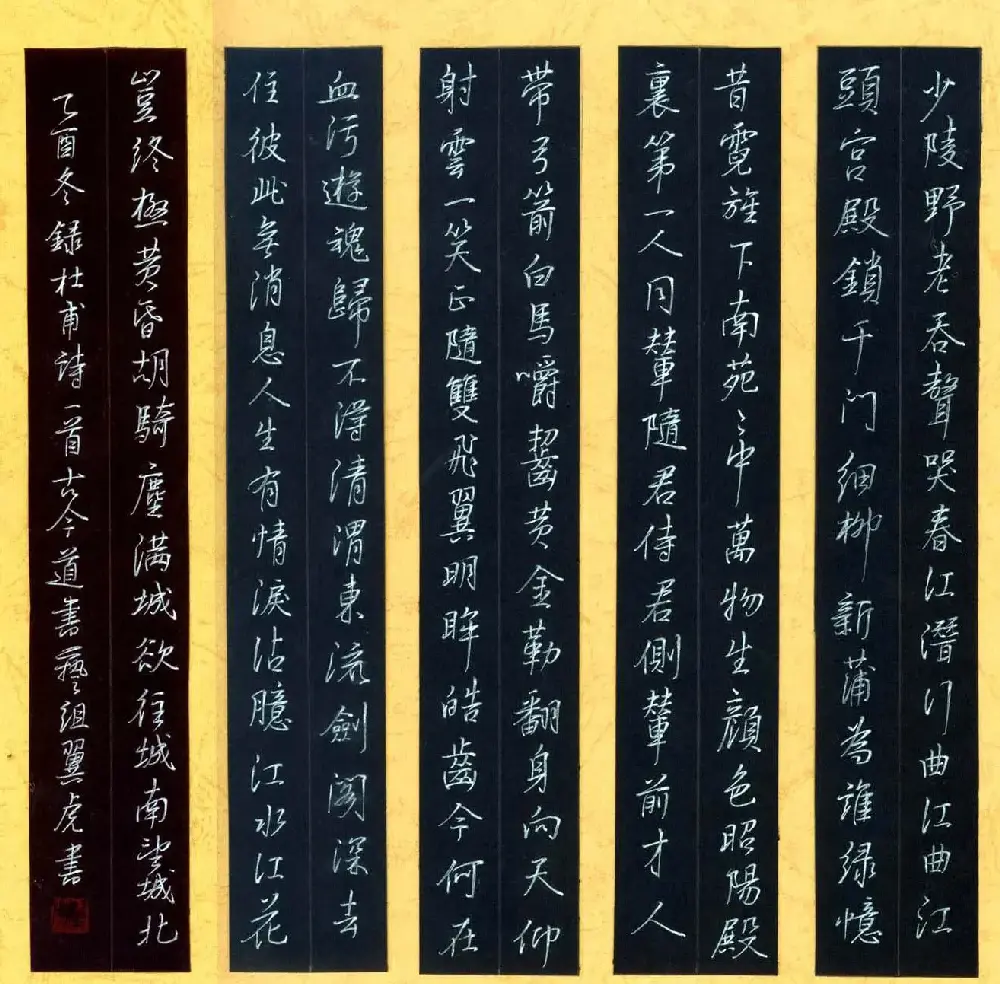 少陵野老吞聲哭春江潛行曲江曲江
頭宫殿鎖千门細柳新蒲為誰绿憶
昔霓旌下南苑々中萬物生顔色昭陽殿
裏第一人同輦隨君侍君側輦前才人
带弓箭白馬嚼齧黄金勒翻身向天仰
射雲一笑正隨雙飛翼明眸皓齒今何在
血污遊魂歸不得清渭東流劍阁深去
住彼此無消息人生有情淚沾臆江水江花
豈终極黄昏胡騎塵满城欲往城南望城北
乙酉冬録杜甫詩一首古今道書藝组翼虎書